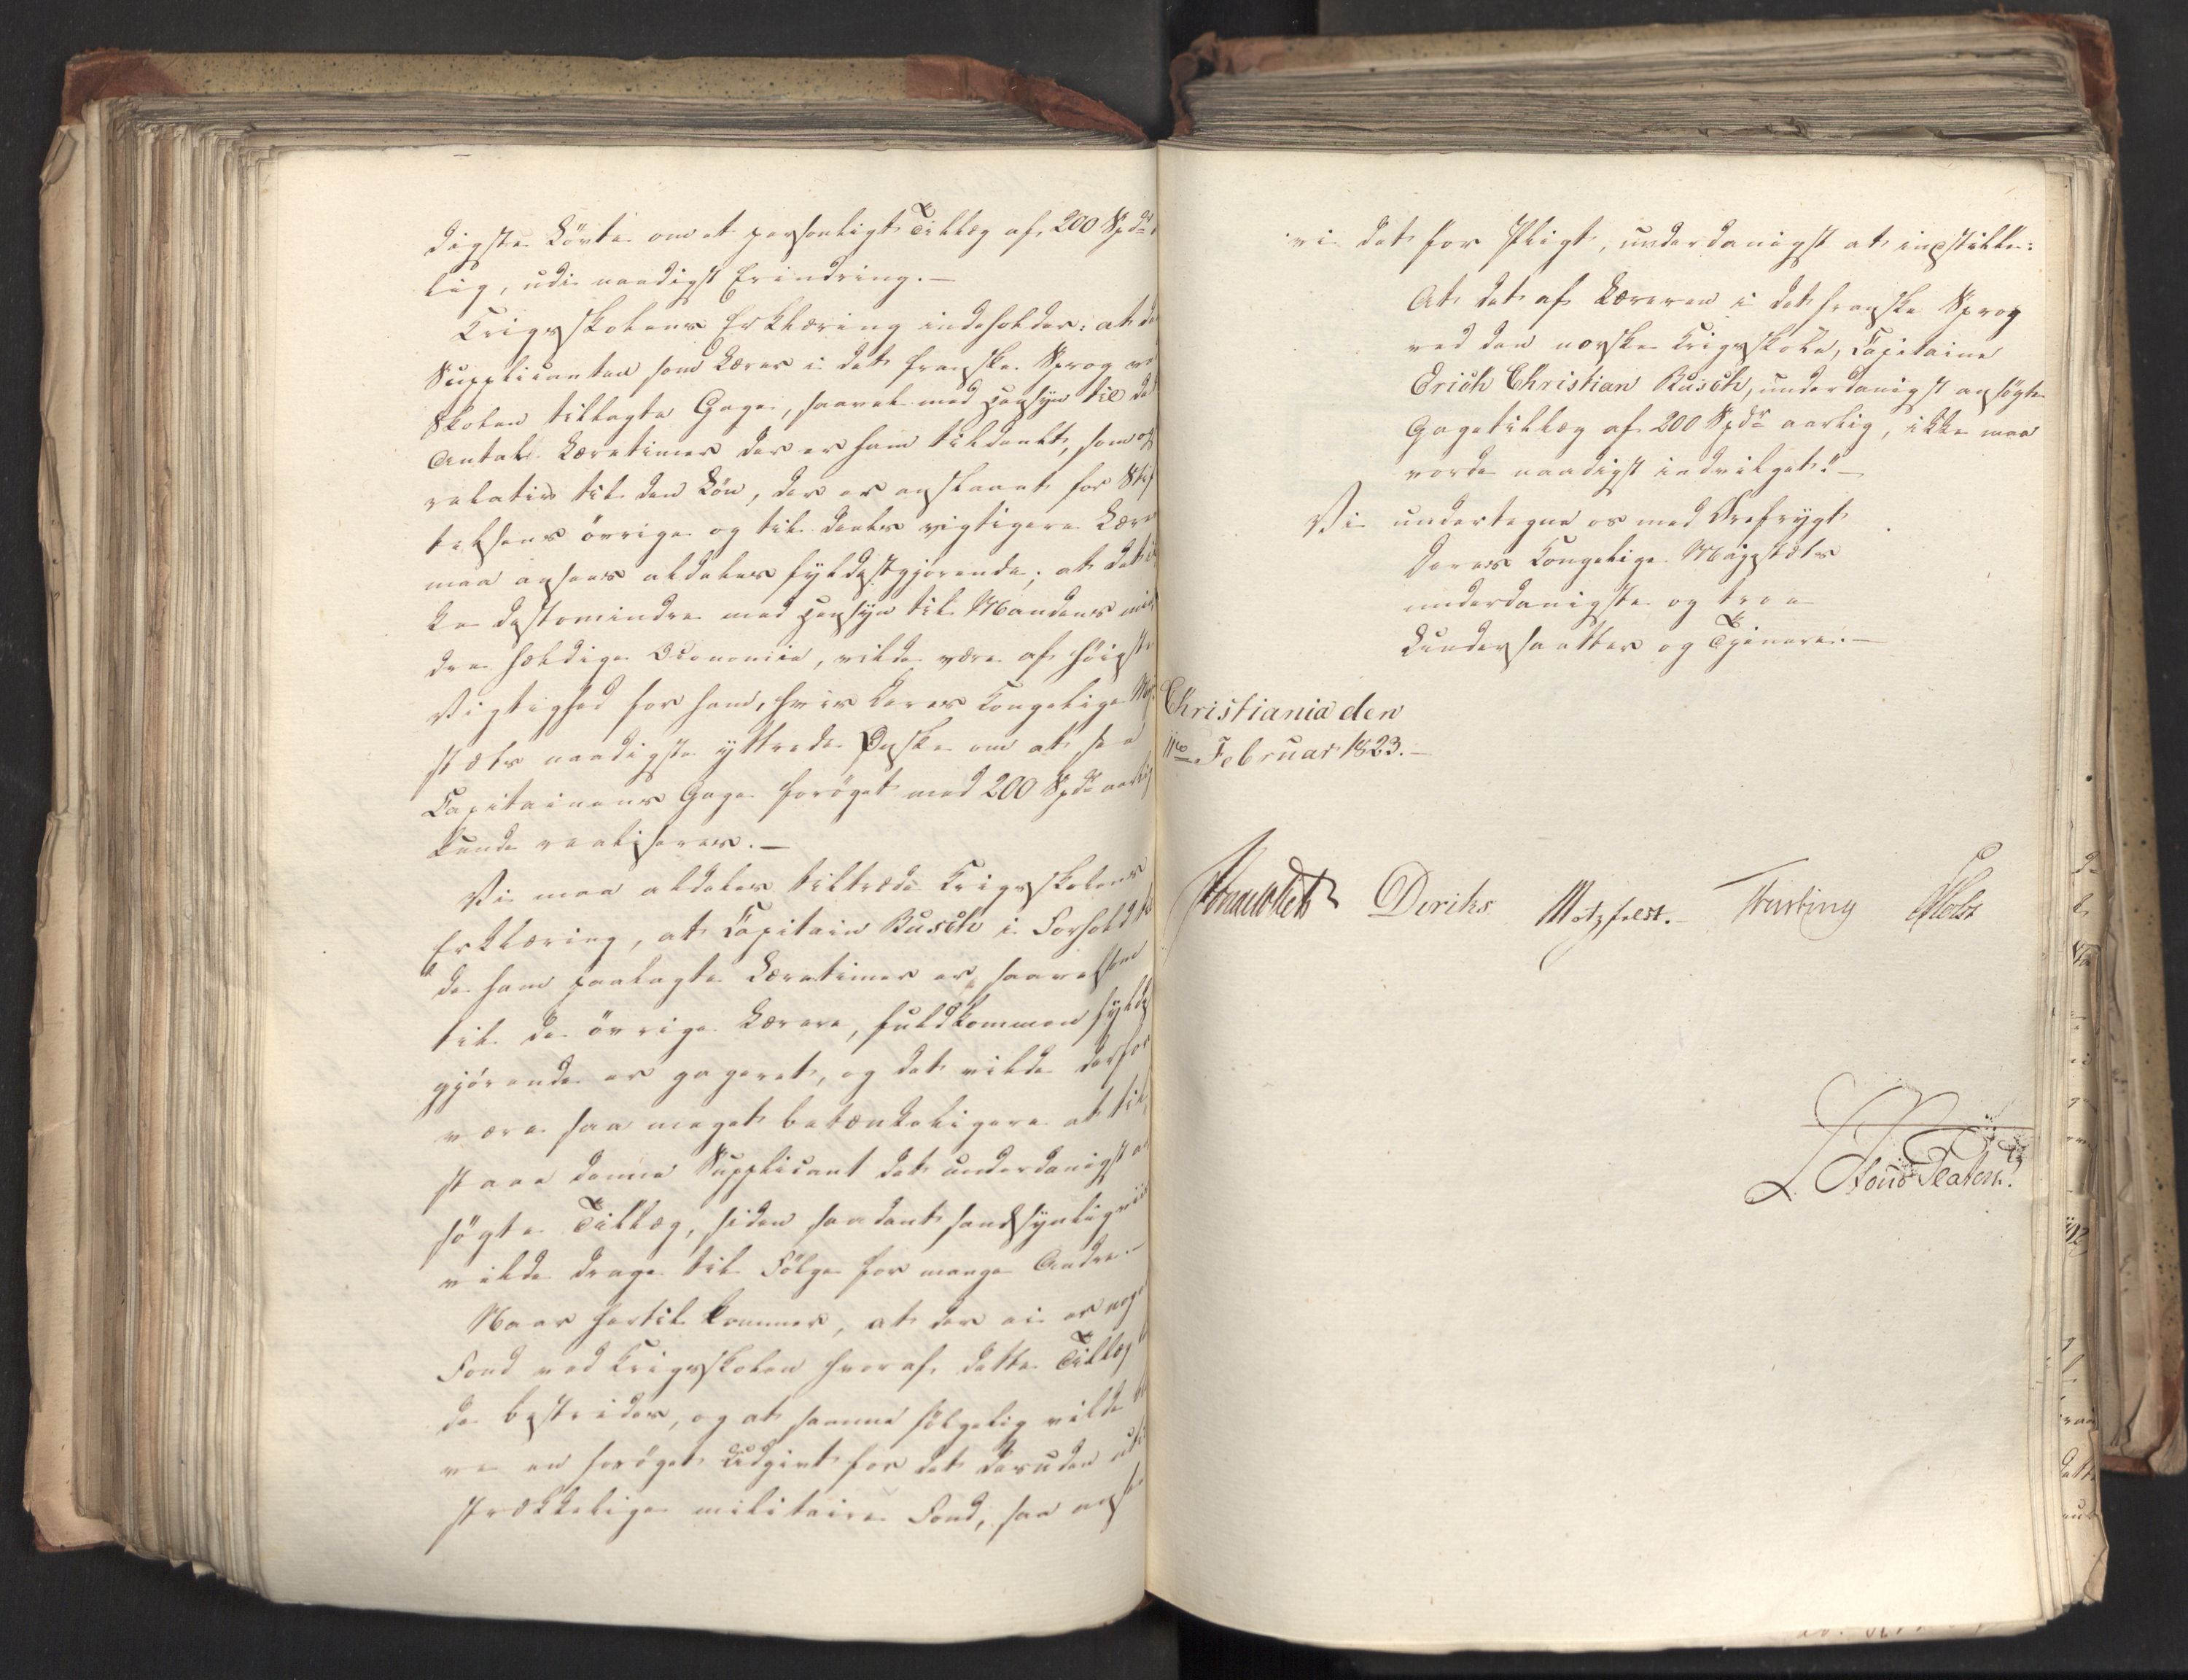 digste Lövte om et personligt Tillæg af 200 Spdr
lig, udi naadigst Erindring. —
Krigsskolens Erklæring indeholder: at de
Supplicanten som Lærer i det franske Sprog ve
Skolen tillagte Gage, saavel med Hensyn til det
Antal Læretimer der er ham tildeelt, som og
relativ til den Lön, der er anslaaet for Stif
telsens övrige og til deels vigtigere Lære
maa ansees aldeles fyldestgjörende; at det ik
ke destomindre med Hensyn til Mandens min
dre heldige Oconomie, vilde være af höieste
Vigtighed for ham, hvis Deres Kongelige Maj
stæts naadigste yttrede Önske om at see
Capitainens Gage foröget med 200 Spdr aarlig
kunde realiseres. —
Vi maa aldeles tiltræde Krigsskolens
Erklæring, at Capitain Rusch i Forhold til
de ham paalagte Læretimer er, saavelsom
til de övrige Lærere, fuldkommen fyldest
gjörende er gageret, og det vilde derfor
være saa meget betænkeligere at til
staae denne Supplicant det underdanigst an
sögte Tillæg, siden saadant sandsynligviis
vilde drage til Fölge for mange Andre. —
Naar hertil kommer, at der ei er noge
Fond ved Krigsskolen hvoraf dette Tillæg k
de bestrides, og at samme fölgelig vilde bli
ve en foröget Udgivt for det desuden util
strækkelige militaire Fond, saa anse
vi det for Pligt, underdanigst at indstille:
At det af Læreren i det franske Sprog
ved den norske Krigsskole, Capitaine
Erich Christian Rusch, underdanigst ansögte
Gagetillæg af 200 Spdr aarlig, ikke maa
vorde naadigst indvilget! —
Vi undertegne os med Ærefrygt
Deres Kongelige Majestæts
underdanigste og troe
Undersaatter og Tjenere. —
Christiania den
11te Februar 1823. —
Diriks Motzfeldt. Holst